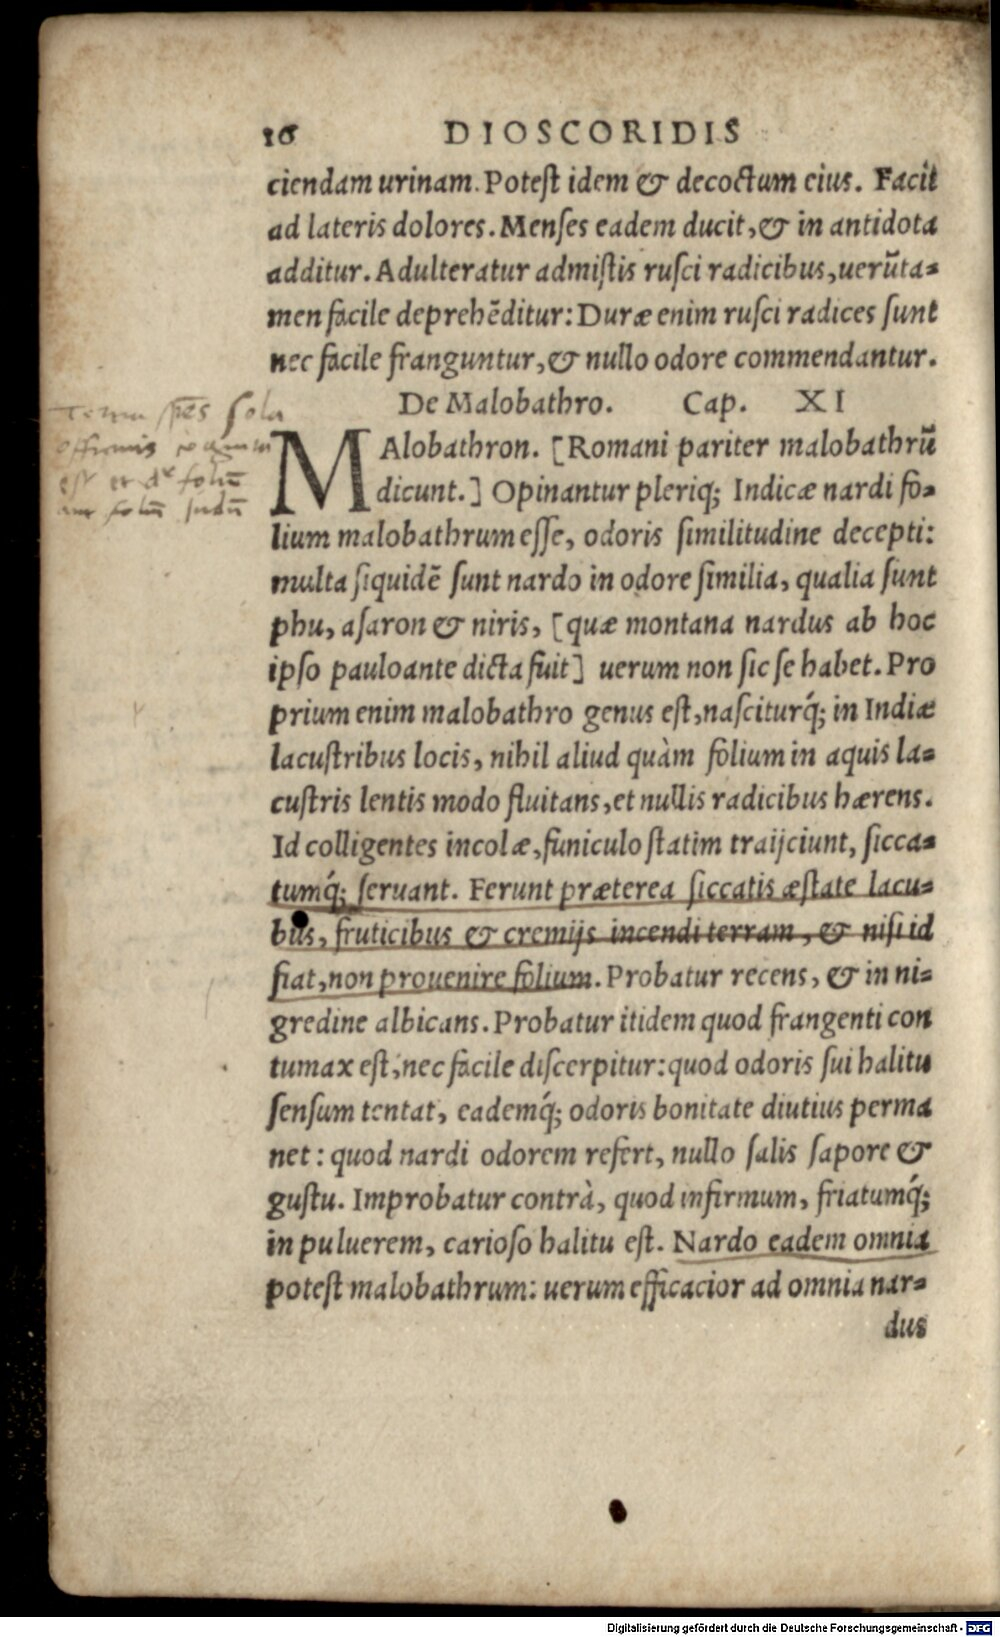 16 DIOSCORIDIS
ciendam urinam. Potest idem & decoctum eius. Facit
ad lateris dolores. Menses eadem ducit, & in antidota
additur. Adulteratur admistis rusci radicibus, uerūta-
men facile deprehēditur: Duræ enim rusci radices sunt
nec facile franguntur, & nullo odore commendantur.
De Malobathro. Cap. XI
MAlobathron. [Romani pariter malobathrū
dicunt.] Opinantur pleriq; Indicæ nardi fo-
lium malobathrum esse, odoris similitudine decepti:
multa siquidē sunt nardo in odore similia, qualia sunt
phu, asaron & niris, [quæ montana nardus ab hoc
ipso pauloante dicta fuit] uerum non sic se habet. Pro
prium enim malobathro genus est, nasciturq́; in Indiæ
lacustribus locis, nihil aliud quàm folium in aquis la-
custris lentis modo fluitans, et nullis radicibus hærens.
Id colligentes incolæ, funiculo statim traijciunt, sicca-
tumq́; seruant. Ferunt præterea siccatis æstate lacu-
bus, fruticibus & cremijs incendi terram, & nisi id
fiat, non prouenire folium. Probatur recens, & in ni-
gredine albicans. Probatur itidem quod frangenti con
tumax est, nec facile discerpitur: quod odoris sui halitu
sensum tentat, eademq́; odoris bonitate diutius perma
net: quod nardi odorem refert, nullo salis sapore &
gustu. Improbatur contrà, quod infirmum, friatumq́;
in puluerem, carioso halitu est. Nardo eadem omnia
potest malobathrum: uerum efficacior ad omnia nar-
dus
sola
est et foliū
foliū Indū
Digitalisierung gefördert durch die Deutsche Forschungsgemeinschaft - DFG